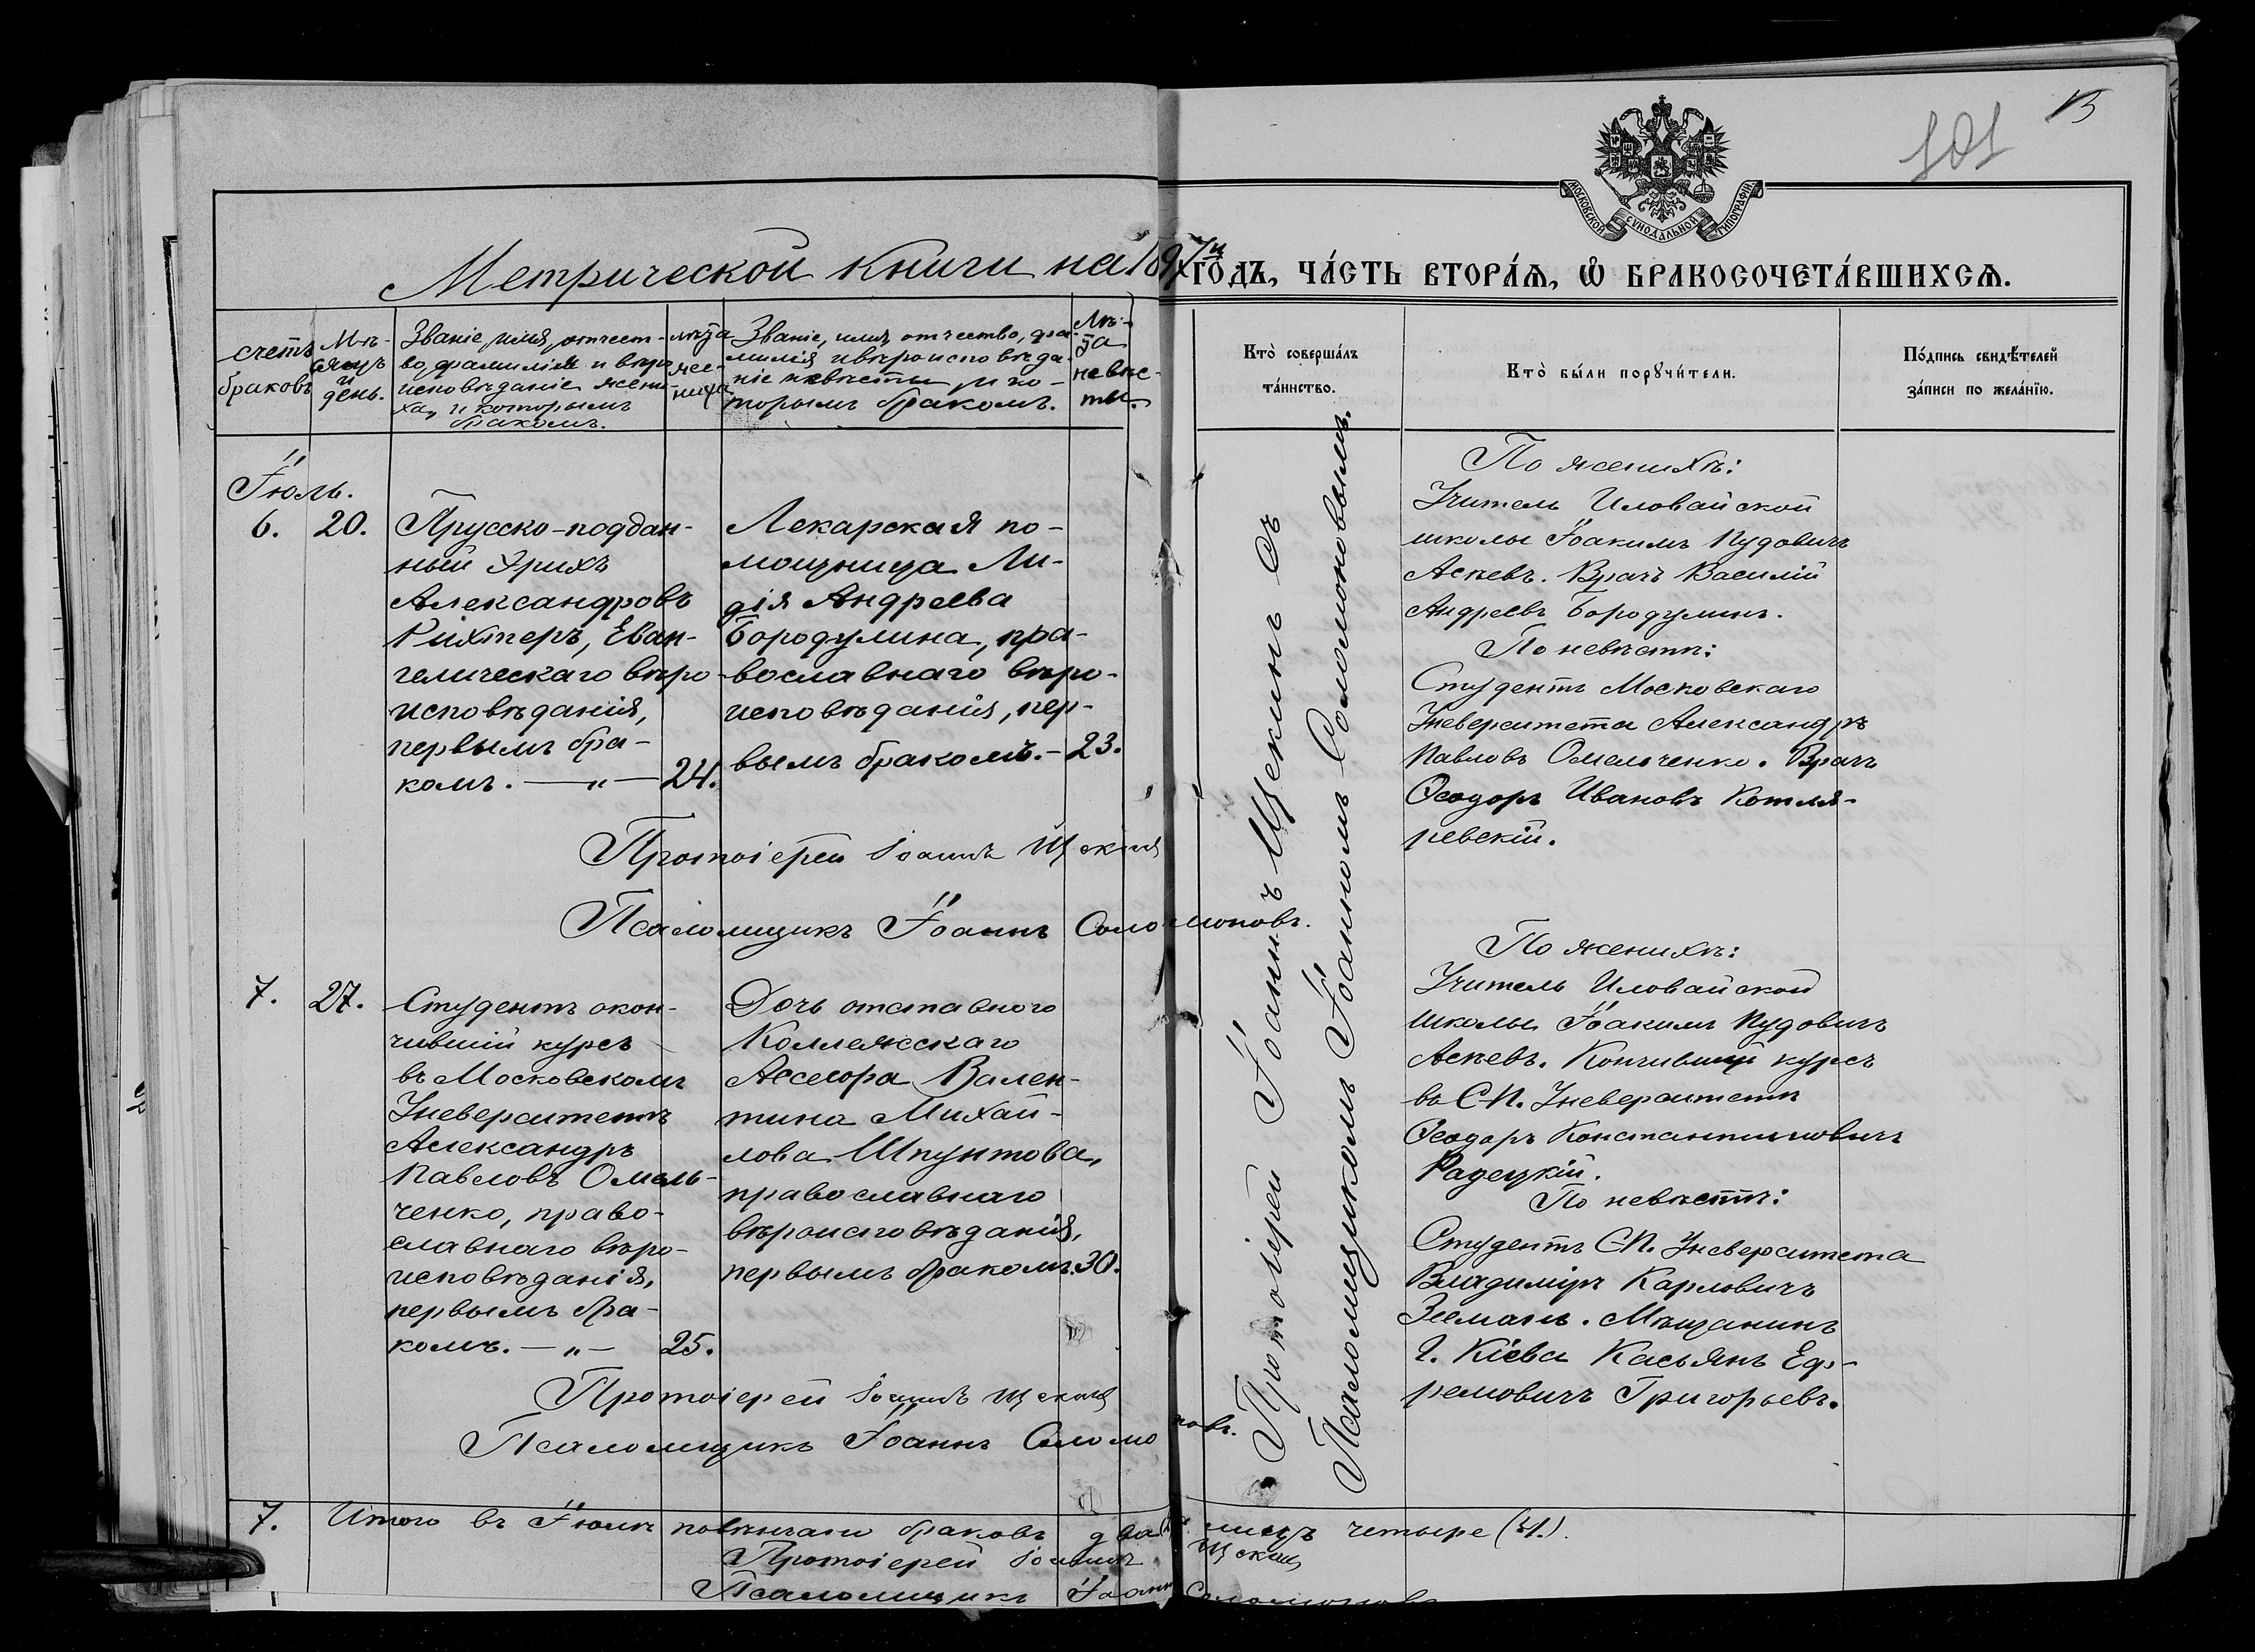 101 13
МОСКОВСКОЙ СѴНОДАЛЬНОЙ ТИПОГРАФІИ.
Метрической книги на 1897й го́дъ, ча́сть втора́ѧ, ѡ҆ бракосочета́вшихсѧ.
счетъ
браковъ
Мѣ-
сяцъ
и
день.
Званіе, имя, отчест-
во, фамилія и вѣро
исповѣданіе жени-
ха, и которымъ
бракомъ.
лѣта
же-
ниха.
Званіе, имя, отчество, фа-
милія и вѣроисповѣда-
ніе невѣсты, и ко-
торымъ бракомъ.
Лѣ-
та
невѣс-
ты.
Кто̀ соверша́лъ
та́инство.
Кто̀ бы́ли порꙋчи́тели.
По́дпись свидѣ́телей
за́писи по жела́нїю.
Іюль.
6. 20.
Прусско-поддан-
ный Эрихъ
Александровъ
Рихтеръ, Еван-
гелическаго вѣро
исповѣданія,
первымъ бра-
комъ. — „ — 24.
Лекарская по-
мощница Ли-
дія Андреева
Бородулина, пра-
вославнаго вѣро-
исповѣданія, пер-
вымъ бракомъ. - 23.
Протоіерей Іоаннъ Щекинъ
Псаломщикъ Іоаннъ Соломоновъ.
Протоіерей Іоаннъ Щекинъ съ
Псаломщикомъ Іоанномъ Соломоновымъ.
По женихѣ:
Учитель Иловайской
школы Іоакимъ Пудовичъ
Аскевъ. Врачъ Василій
Андреевъ Бородулинъ.
По невѣстѣ:
Студентъ Московскаго
Уневерситета Александръ
Павловъ Омельченко. Врачъ
Ѳеодоръ Ивановъ Котля-
ревскій.
7. 27.
Студентъ окон-
чившій курсъ
въ Московскомъ
Уневерситетѣ
Александръ
Павловъ Омель-
ченко, право-
славнаго вѣро-
исповѣданія,
первымъ бра-
комъ. — „ — 25.
Дочь отставного
Коллежскаго
Асесора Вален-
тина Михай-
лова Шпунтова,
православнаго
вѣроисповѣданія,
первымъ бракомъ. 30.
По женихѣ:
Учитель Иловайской
школы Іоакимъ Пудовичъ
Аскевъ. Кончившій курсъ
въ С-П. Уневерситетѣ
Ѳеодоръ Константиновичъ
Радецкій.
По невѣстѣ:
Студентъ С-П. Уневерситета
Владиміръ Карловичъ
Зееманъ. Мѣщанинъ
г. Кіева Касьянъ Еф-
ремовичъ Григорьевъ.
Протоіерей Іоаннъ Щекинъ
Псаломщикъ Іоаннъ Соломоновъ.
7. Итого въ Іюлѣ повѣнчано браковъ два лицъ четыре (4.).
Протоіерей Іоаннъ Щекинъ
Псаломщикъ Іоаннъ Соломоновъ